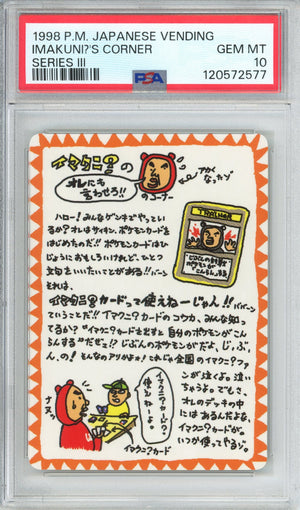 1998 P.M. JAPANESE VENDING
IMAKUNI?'S CORNER
GEM MT
SERIES III
10
PSA
120572577
イマクニ?の
オレにも
言わせろ!!
のコーナー
アカく
なったゾ
ハロー!みんなゲンキでやっている
か?オレはサイキン、ポケモンカードを
はじめたのだ!!ポケモンカードはひ
じょうにおもしろいけれど、ひとつ
文句をいいたいことがある!!バーン
それは、
イマクニ?カードって使えねーじゃん!!ババーン
ということだ!!イマクニ?カードのコウカ、みんな知っ
てるか?"イマクニ?カードを出すと自分のポケモンがこん
らんする"だぜっ!じぶんのポケモンがだよ。じ、ぶ、
ん、の!そんなのアリかよォ!これじゃ全国のイマクニ?ファ
ンが泣くよ。泣い
ちゃうよ。でもさ、
オレのデッキの中
にはあるんだよな、
イマクニ?カードが。
いつか使ってやるゾ。
TRAINER
じぶんの封印
ポケモンが
こんらんする
イマクニ?カード?
使えねーよ。
ナヌッ
イマクニ?カード